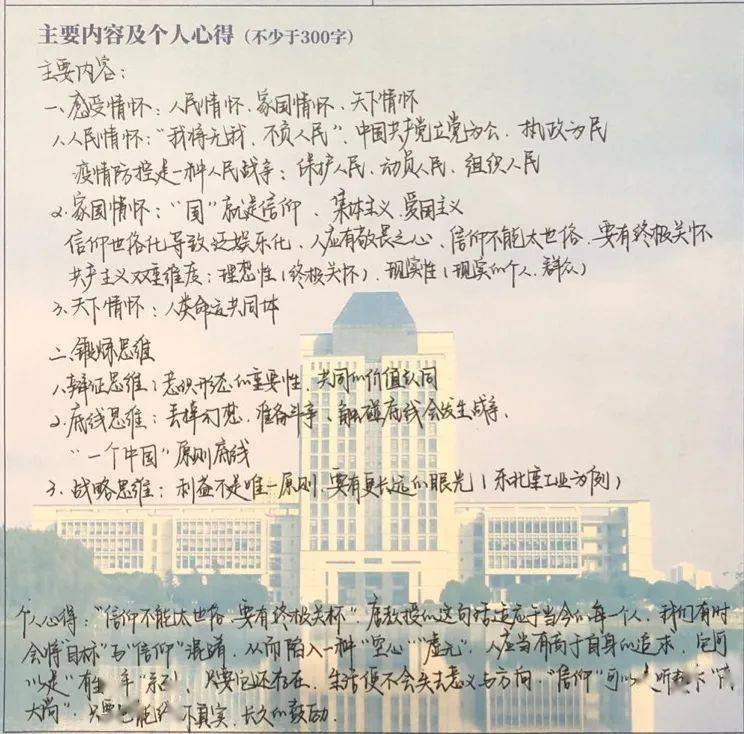 主要内容及个人心得（不少于300字）
主要内容：
一、感受情怀：人民情怀、家国情怀、天下情怀
1.人民情怀："我将无我，不负人民"，中国共产党立党为公、执政为民
疫情防控是一种人民战争：保护人民、动员人民、组织人民
2.家国情怀："国"就是信仰、集体主义、爱国主义
信仰世俗化导致泛娱乐化，人应有敬畏之心，信仰不能太世俗，要有终极关怀
共产主义双重维度：理想性（终极关怀）、现实性（现实的个人、群众）
3.天下情怀：人类命运共同体
二、锻炼思维
1.辩证思维：意识形态的主要性、共同的价值认同
2.底线思维：丢掉幻想，准备斗争，触碰底线会发生战争，
"一个中国"原则底线
3.战略思维：利益不是唯一原则，要有更长远的眼光（东北重工业为例）
个人心得："信仰不能太世俗，要有终极关怀"，教授的这句话适应于当今的每一个人，我们有时
会将"目标"与"信仰"混淆，从而陷入一种"空心""虚无"，人应当有高于自身的追求，它可
以是，只要它还存在，生活便不会失去意义与方向，"信仰"可以
大尚"，只要不真实、长久的鼓动.